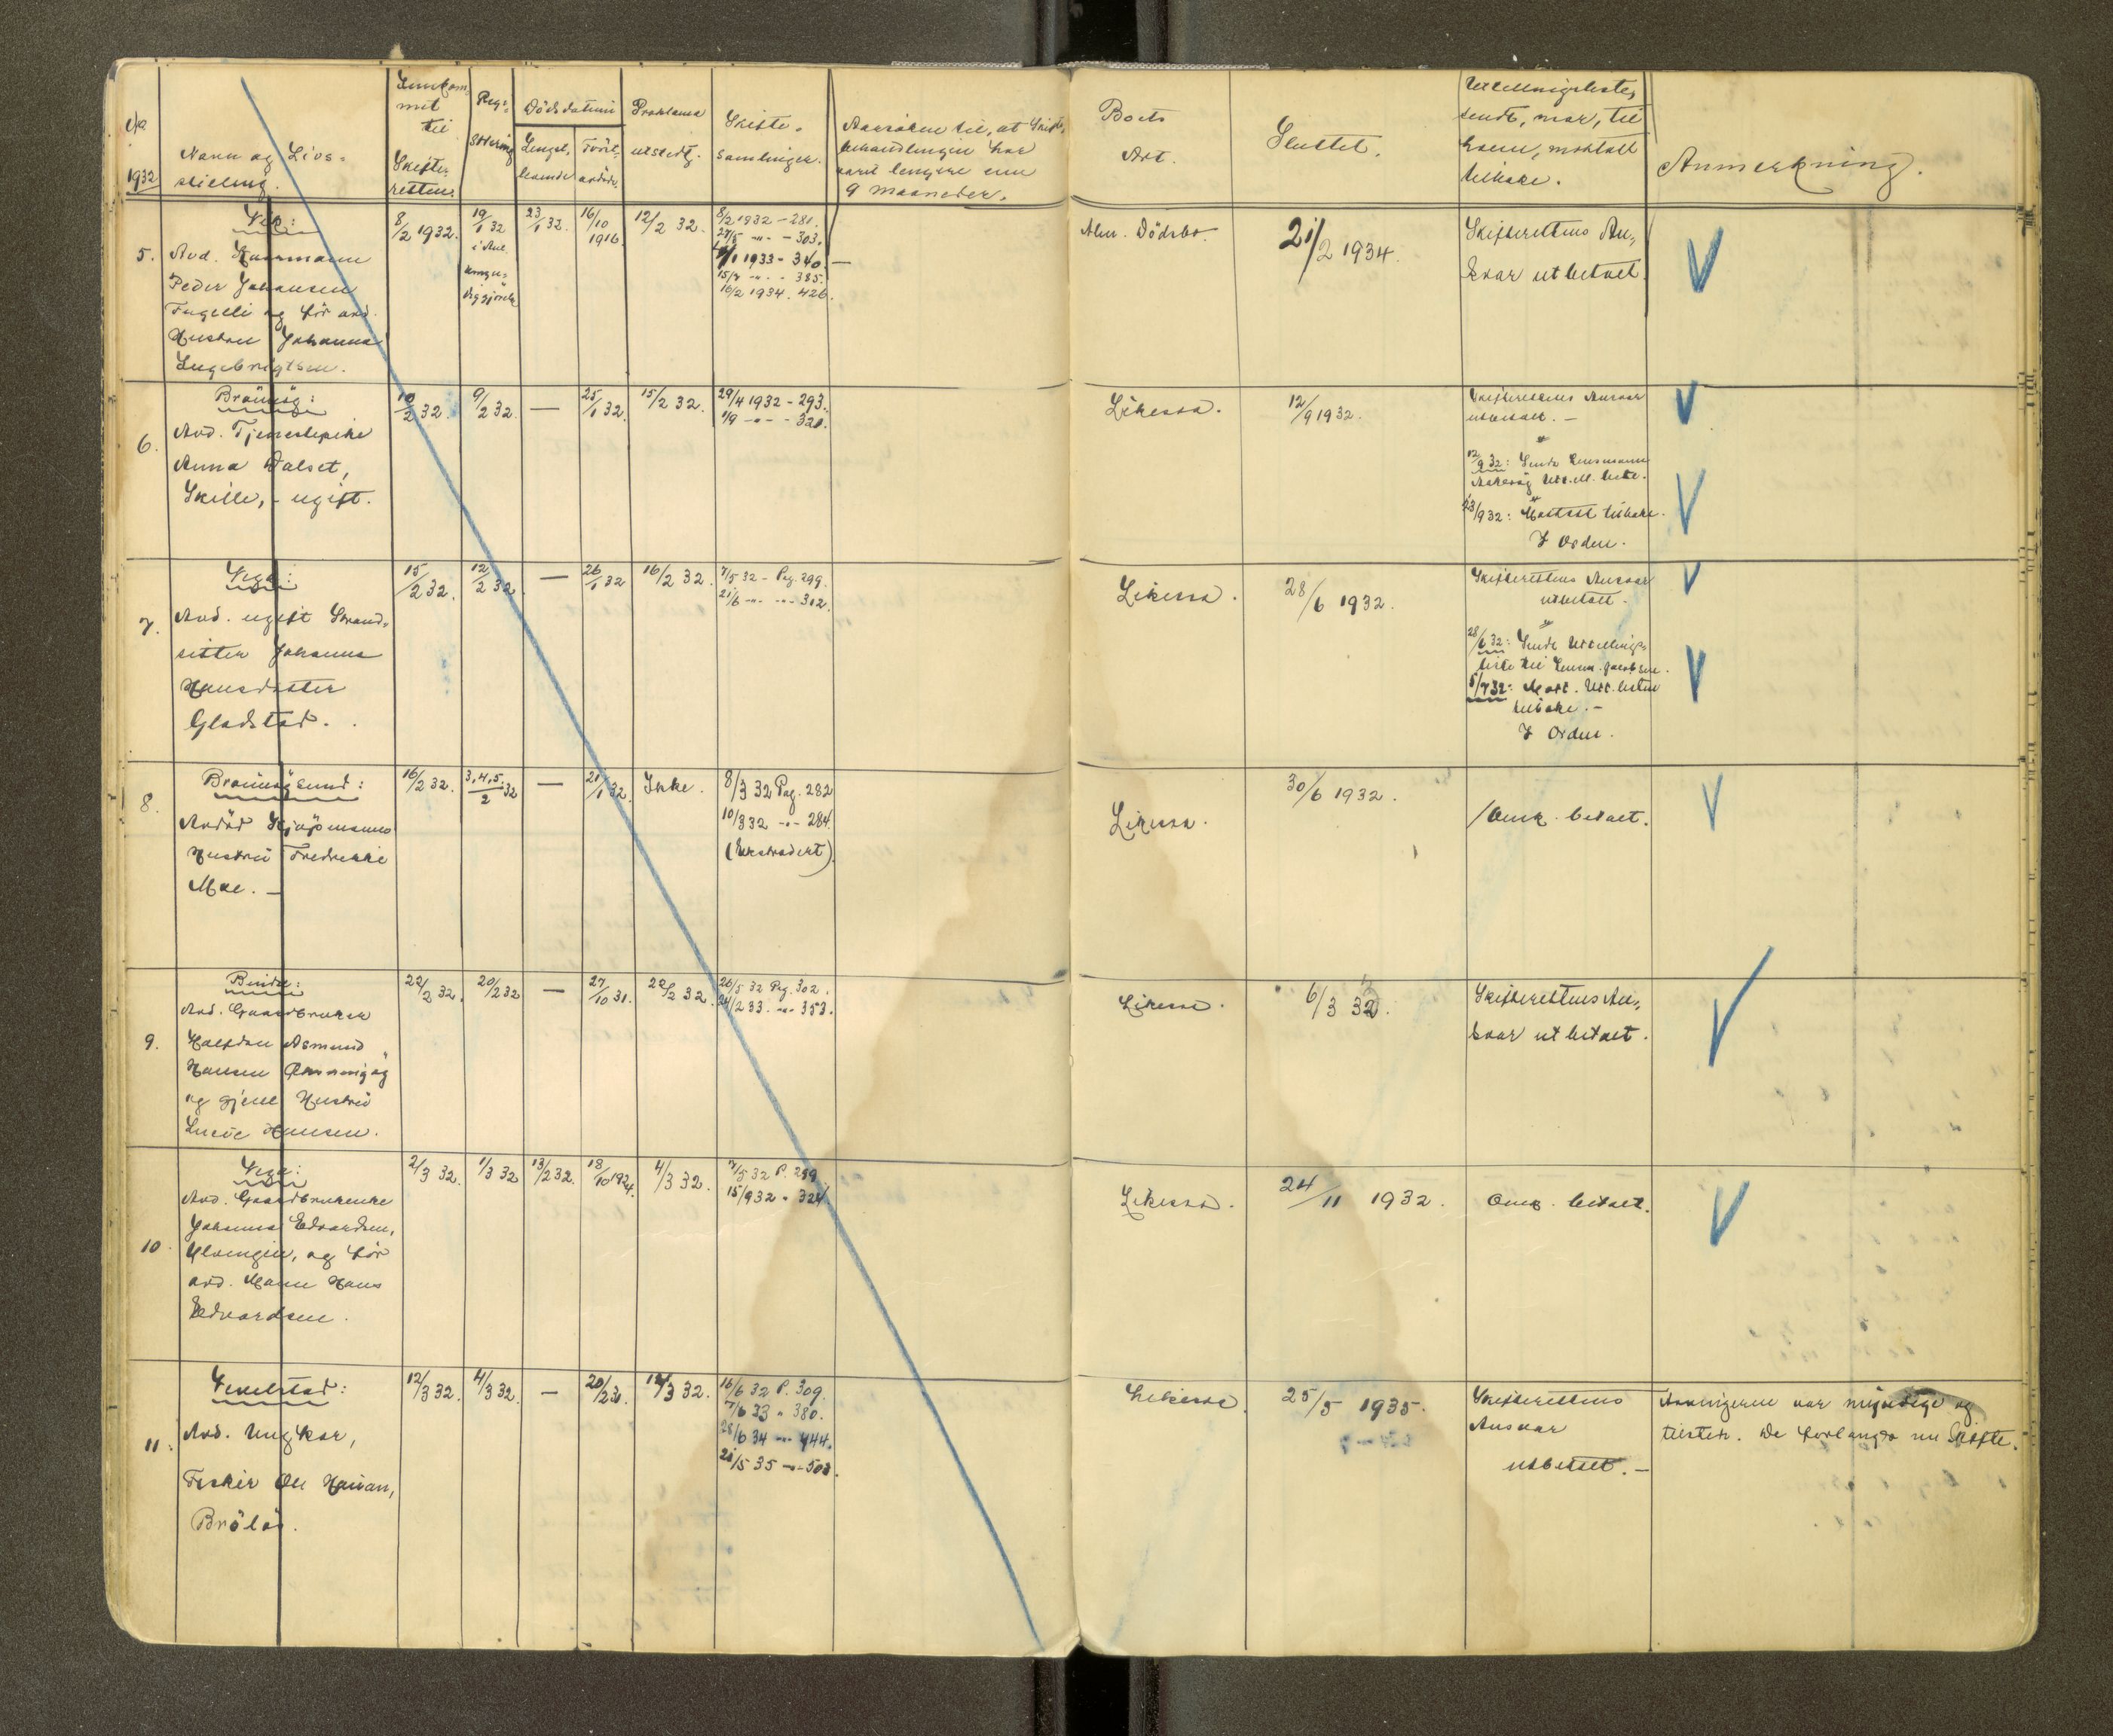 No
1932
Navn og Livs-
stilling.
Innkom-
met
til
Skifte-
retten.
Regi-
strering
Dödsdatum
Lengst-
levende
Först-
avdöde
Proklama
utstedt.
Skifte-
samlinger.
Aarsaken til, at Skifte-
behandlingen har
varit lengere enn
9 maaneder.
Boets
Art.
Sluttet.
Utlodningsliste,
sendt, naar, til
hvem, mottatt
tilbake.
Anmerkning.
5.
Vega:
Avd. Kaarmann
Peder Johansen
Fugelli og för avd.
Hustru Johanna
Ingebrigtsen.
8/2 1932.
19/1 32
23/1 32.
16/10
1916.
12/2 32.
8/2 1932 - 281.
27/5 -"- - 303.
1933 - 340. —
15/7 -"- - 385.
16/2 1934. 426.
Alm. Dödsbo.
21/2 1934.
Skifterettens An-
svar utbetalt.
6.
Brönnöy:
Avd. Tjenestepike
Anna Dalset,
Skille, - ugift.
10/2 32.
9/2 32.
—
25/1 32.
15/2 32.
29/4 1932 - 293.
1/9 -"- - 320.
Likessa.
12/9 1932.
Skifterettens Ansvar
utbetalt. —
12/9 32: Sendt Lensmann
Aakerøy Utl. liste.
23/9 32: Mottatt tilbake.
I Orden.
7.
Vega:
Avd. ugift Strand-
sitter Johanna
Hansdatter
Gladstad.
15/2 32.
12/2 32.
—
26/1 32
16/2 32.
7/5 32 - Pag. 299.
21/6 -"- -"- 312.
Likessa.
28/6 1932.
Skifterettens Ansvar
utbetalt.
28/6 32: Sendt Utlodnings-
liste til Lensm. Jacobsen.
5/7 32: Mott. Utl. listen
tilbake. —
I Orden.
8.
Brönnöysund:
Avdöd Kjöpmanns
Hustru Fredrikke
Moe. —
16/2 32.
3,4,5./2 32
—
21/1 32.
Ikke.
8/3 32 Pag. 282
10/3 32 -"- 284.
(Ekstradert)
Likessa.
30/6 1932.
/Omk. betalt.
9.
Bindal:
Avd. Gaardbruker
Halfdan Asmund
Hansen
og gjenl Hustru
Lucie Hansen.
22/2 32.
20/2 32
—
27/10 31.
22/2 32.
26/5 32 Pag. 302.
24/2 33. -"- 353.
Likessa.
6/3 32.
Skifterettens An-
svar utbetalt.
10.
Vega:
Avd. Gaardbrukerske
Johanna Edvardsen,
Ylvingen, og för
avd. Mann Hans
Edvardsen.
2/3 32.
1/3 32
13/2 32.
18/10 1924.
4/3 32.
7/5 32 P. 299
15/9 32 " 324
Likessa.
24/11 1932.
Omk. betalt.
11.
Vevelstad:
Avd. Ungkar,
Fisker Ole Hansen,
Brölös.
12/3 32.
4/3 32.
—
12/3 32.
16/6 32 P. 309.
7/6 33 " 380.
28/6 34 -"- 444.
21/5 35 -"- 503.
Likessa.
25/5 1935.
Skifterettens
Ansvar
utbetalt. —
Arvingerne var myndige og
tilstede. De forlangte nu Skifte.